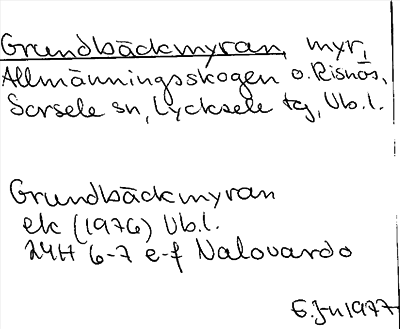 Grundbäckmyran, myr,
Allmänningsskogen o. Risnäs,
Sorsele sn, Lycksele tg, Vb.l.
Grundbäckmyran
ek (1976) Vb.l.
24H 6-7 e-f Nalovardo
1977